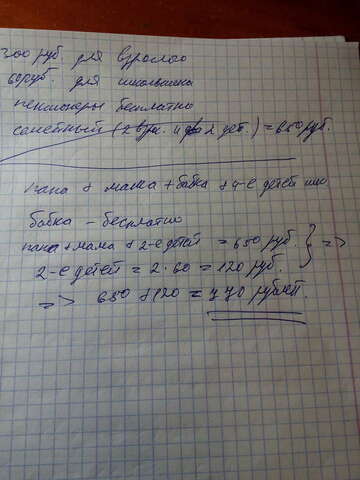 300 руб. для взрослого
60 руб. для школьника
пенсионеры бесплатно
семейный (2 взр. и 2 дет.) = 650 руб.
папа + мама + бабка + 4-е детей шк
бабка - бесплатно
папа + мама + 2-е детей = 650 руб. } =>
2-е детей = 2 · 60 = 120 руб.
=> 650 + 120 = 770 рублей.